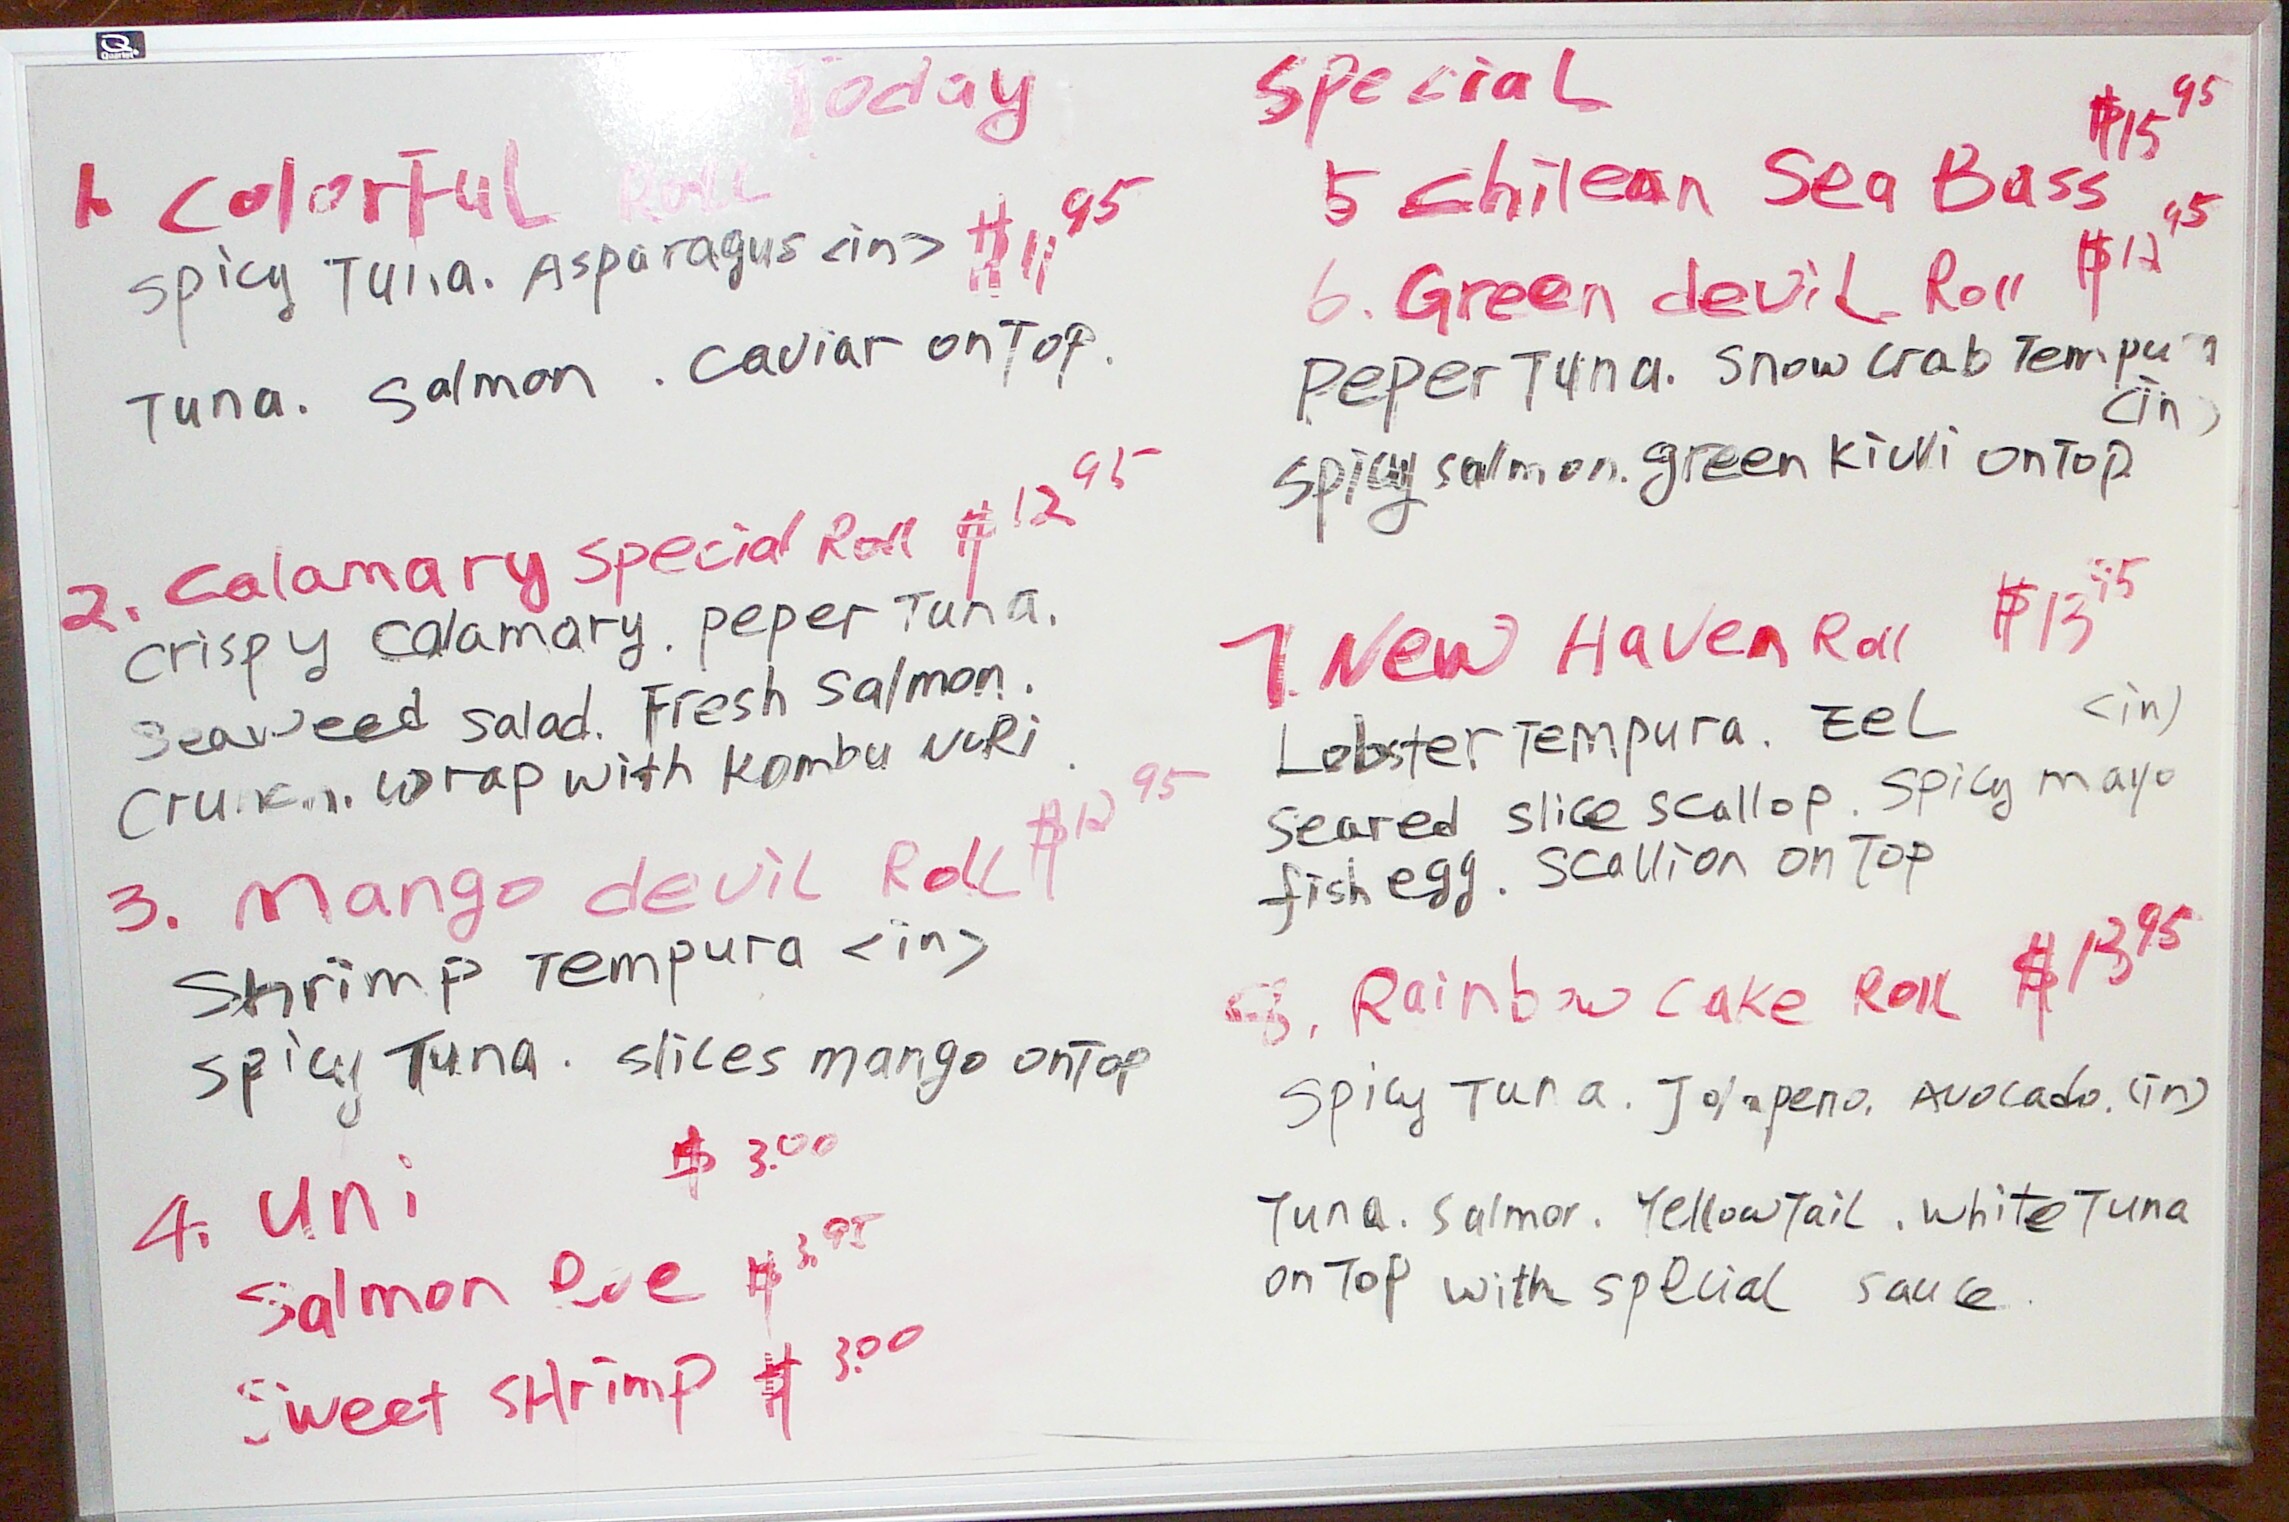 Quartet
Today Special
1. Colorful Roll $11.95
Spicy Tuna. Asparagus <in>
Tuna. Salmon. Caviar on Top.
2. Calamary Special Roll $12.95
Crispy Calamary. Peper Tuna.
Seaweed Salad. Fresh Salmon.
wrap with Kombu Nori.
3. Mango devil Roll $12.95
Shrimp Tempura <in>
Spicy Tuna. slices mango on Top
4. Uni $3.00
Salmon Roe $3.95
Sweet Shrimp $3.00
5 Chilean Sea Bass $15.95
6. Green devil Roll $12.95
Peper Tuna. Snow Crab Tempura
<in>
Spicy Salmon. green Kiwi on Top
7. New Haven Roll $13.95
Lobster Tempura. Eel <in>
Seared slice scallop. Spicy mayo
fish egg. Scallion on Top
8. Rainbow Cake Roll $13.95
Spicy Tuna. Jalapeno. Avocado. <in>
Tuna. Salmon. Yellow Tail. White Tuna
on Top with special sauce.